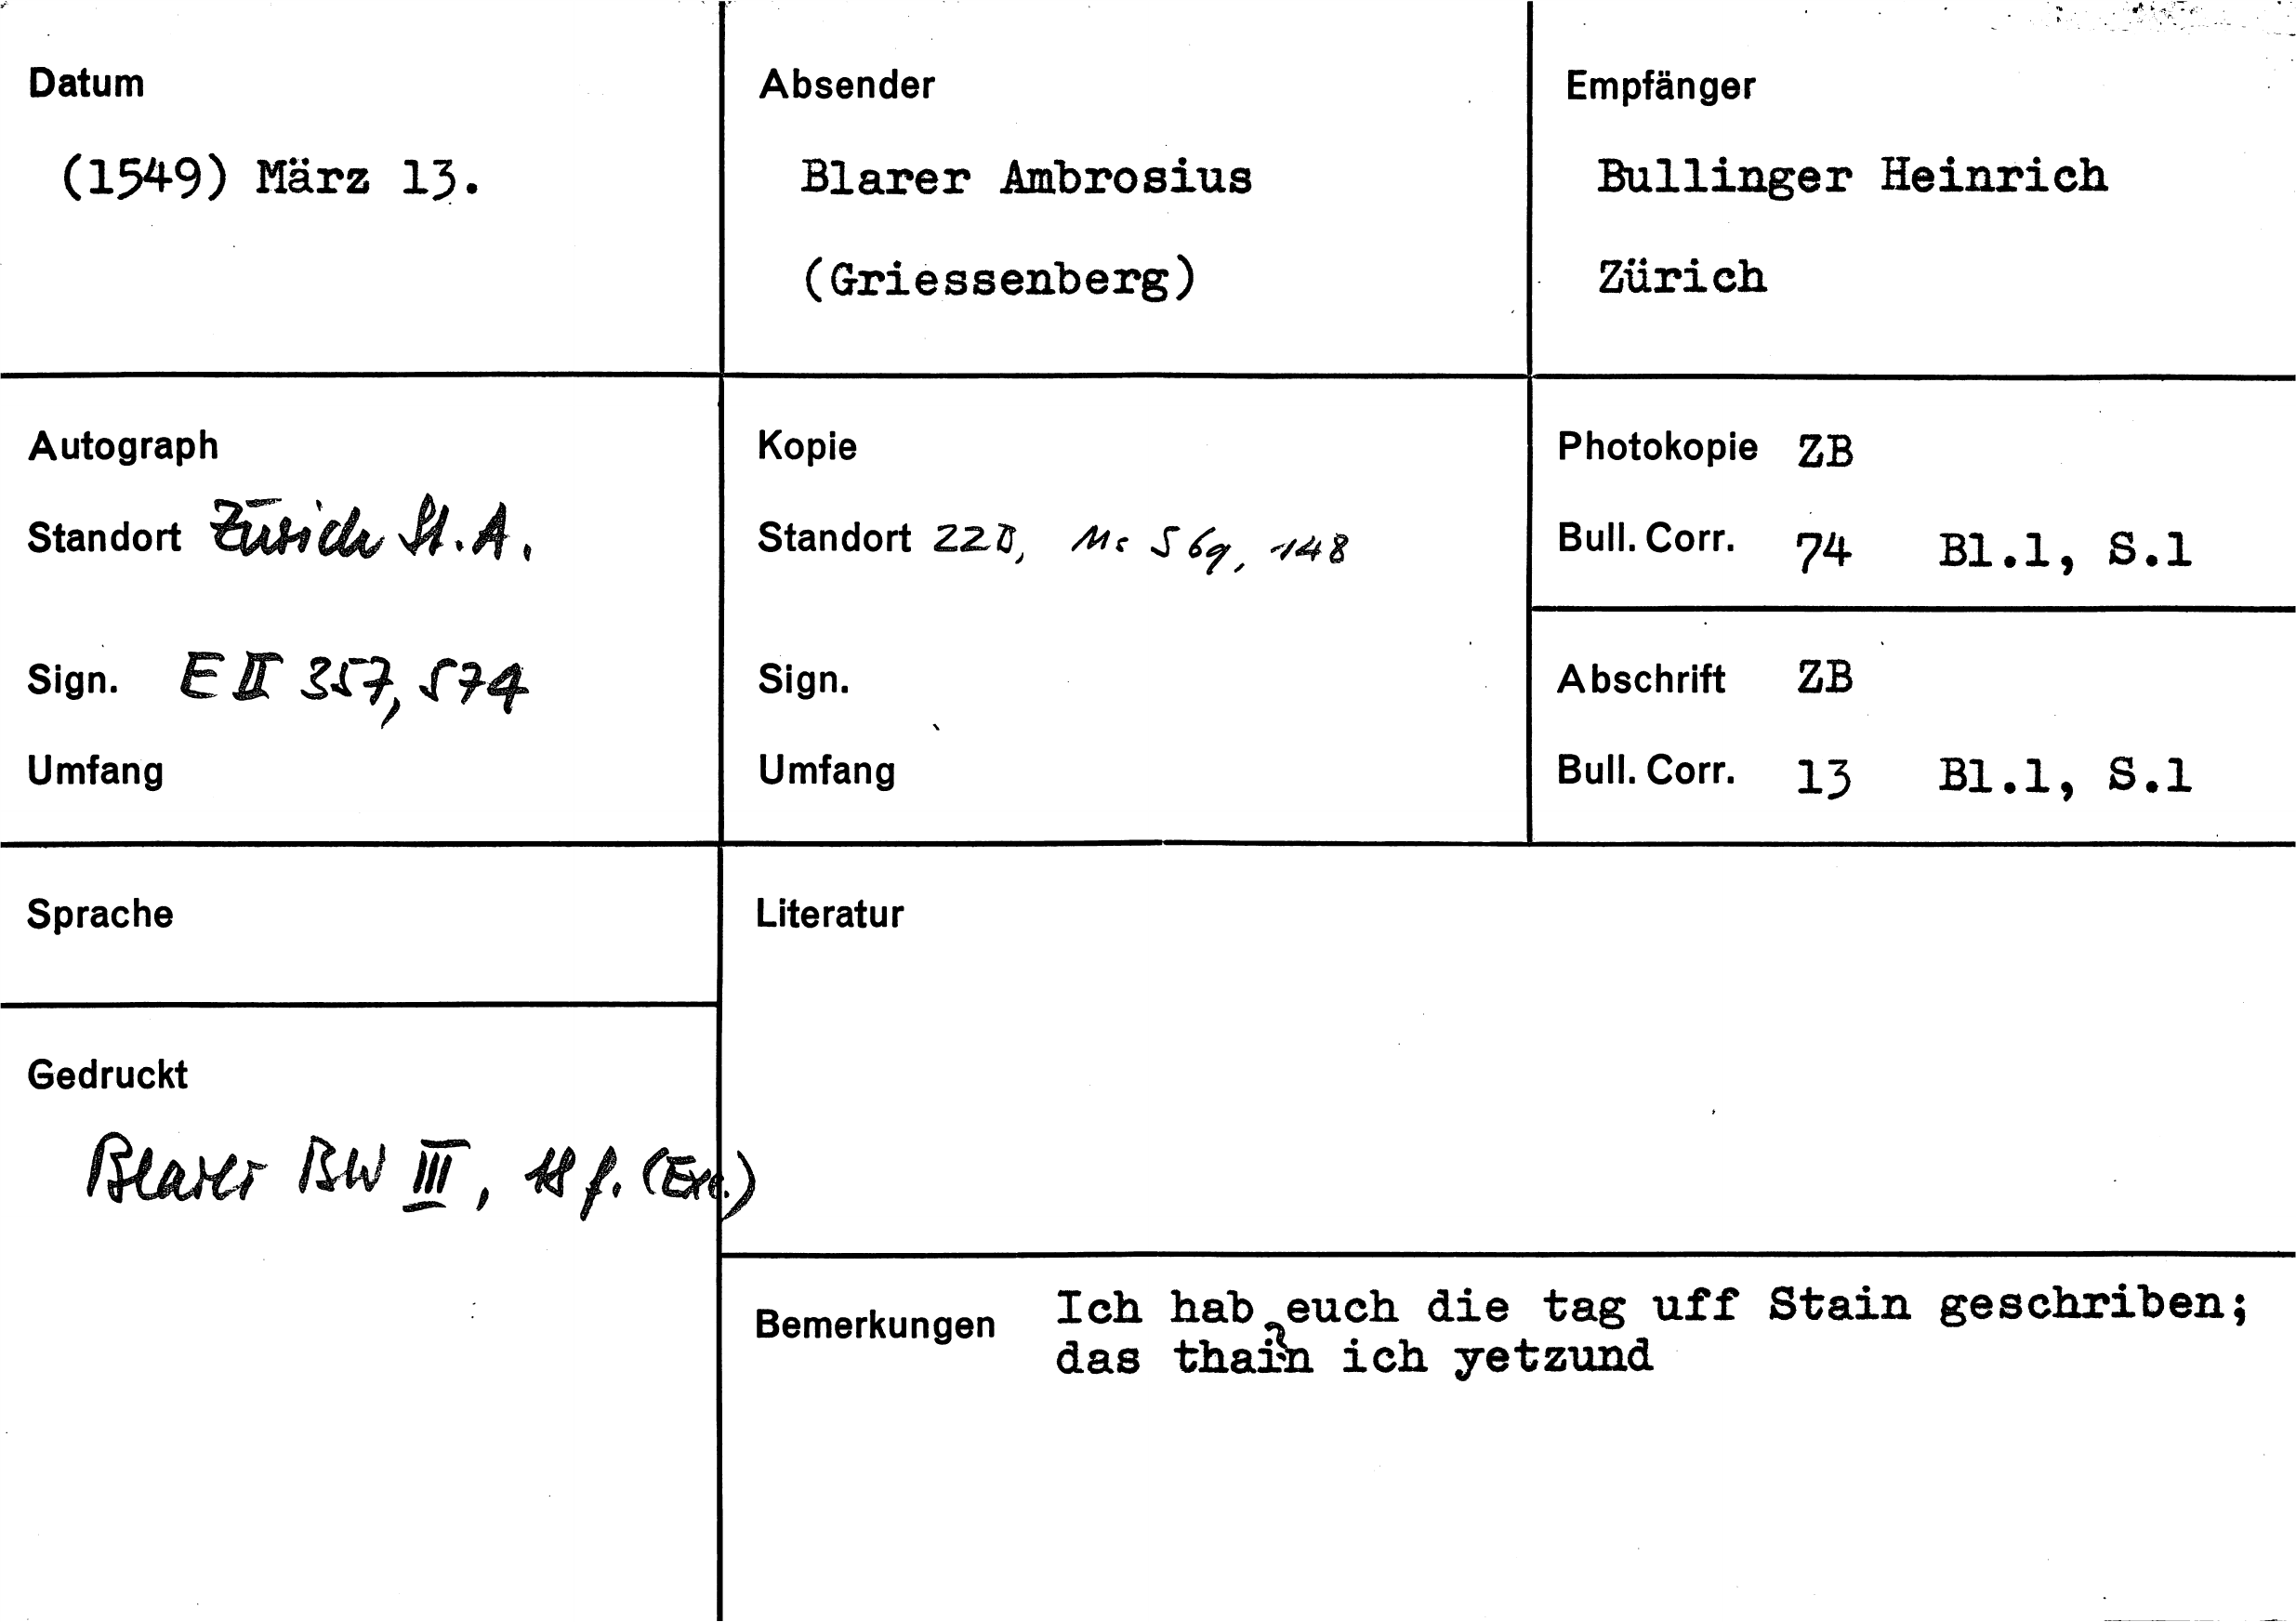 Datum
(1549) März 13.
Absender
Blarer Ambrosius
(Griessenberg)
Empfänger
Bullinger Heinrich
Zürich
Autograph
Standort Zürich St. A.
Sign. E II 357, 574
Umfang
Kopie
Standort ZZB, Ms S 69, 148
Sign.
Umfang
Photokopie ZB
Bull. Corr. 74 Bl.1, S.1
Abschrift ZB
Bull. Corr. 13 Bl.1, S.1
Sprache
Literatur
Gedruckt
Blarer BW III, 18 f. (Exc.)
Bemerkungen Ich hab euch die tag uff Stain geschriben;
das thain ich yetzund